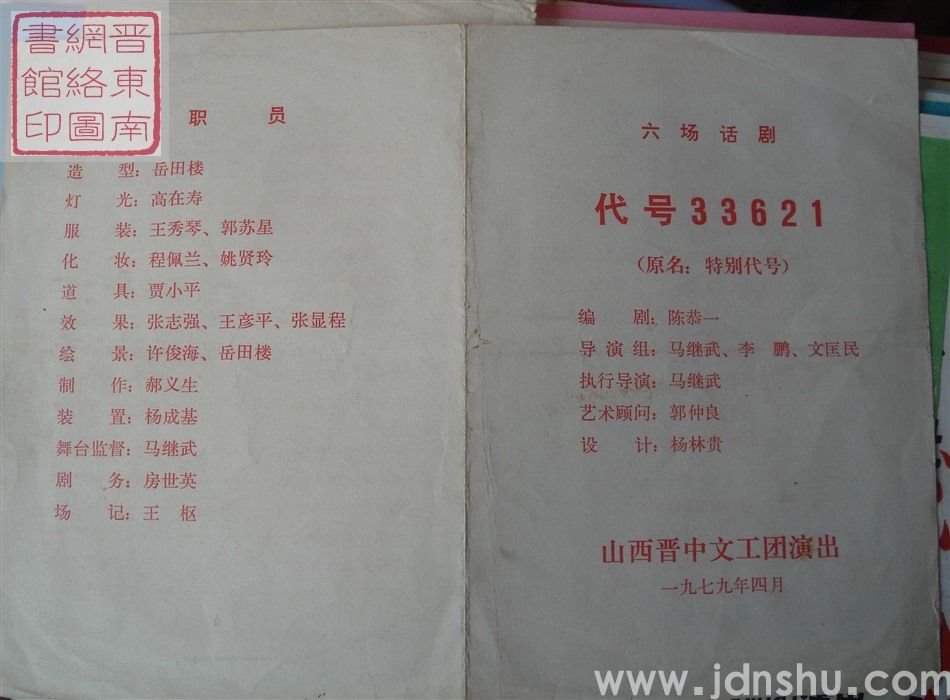 晋东南
網絡圖
書館印
职 员
造 型：岳田楼
灯 光：高在寿
服 装：王秀琴、郭苏星
化 妆：程佩兰、姚贤玲
道 具：贾小平
效 果：张志强、王彦平、张显程
绘 景：许俊海、岳田楼
制 作：郝义生
装 置：杨成基
舞台监督：马继武
剧 务：房世英
场 记：王 枢
六场话剧
代号33621
（原名：特别代号）
编 剧：陈恭一
导演组：马继武、李 鹏、文匡民
执行导演：马继武
艺术顾问：郭仲良
设 计：杨林贵
山西晋中文工团演出
一九七九年四月
www.jdnshu.com